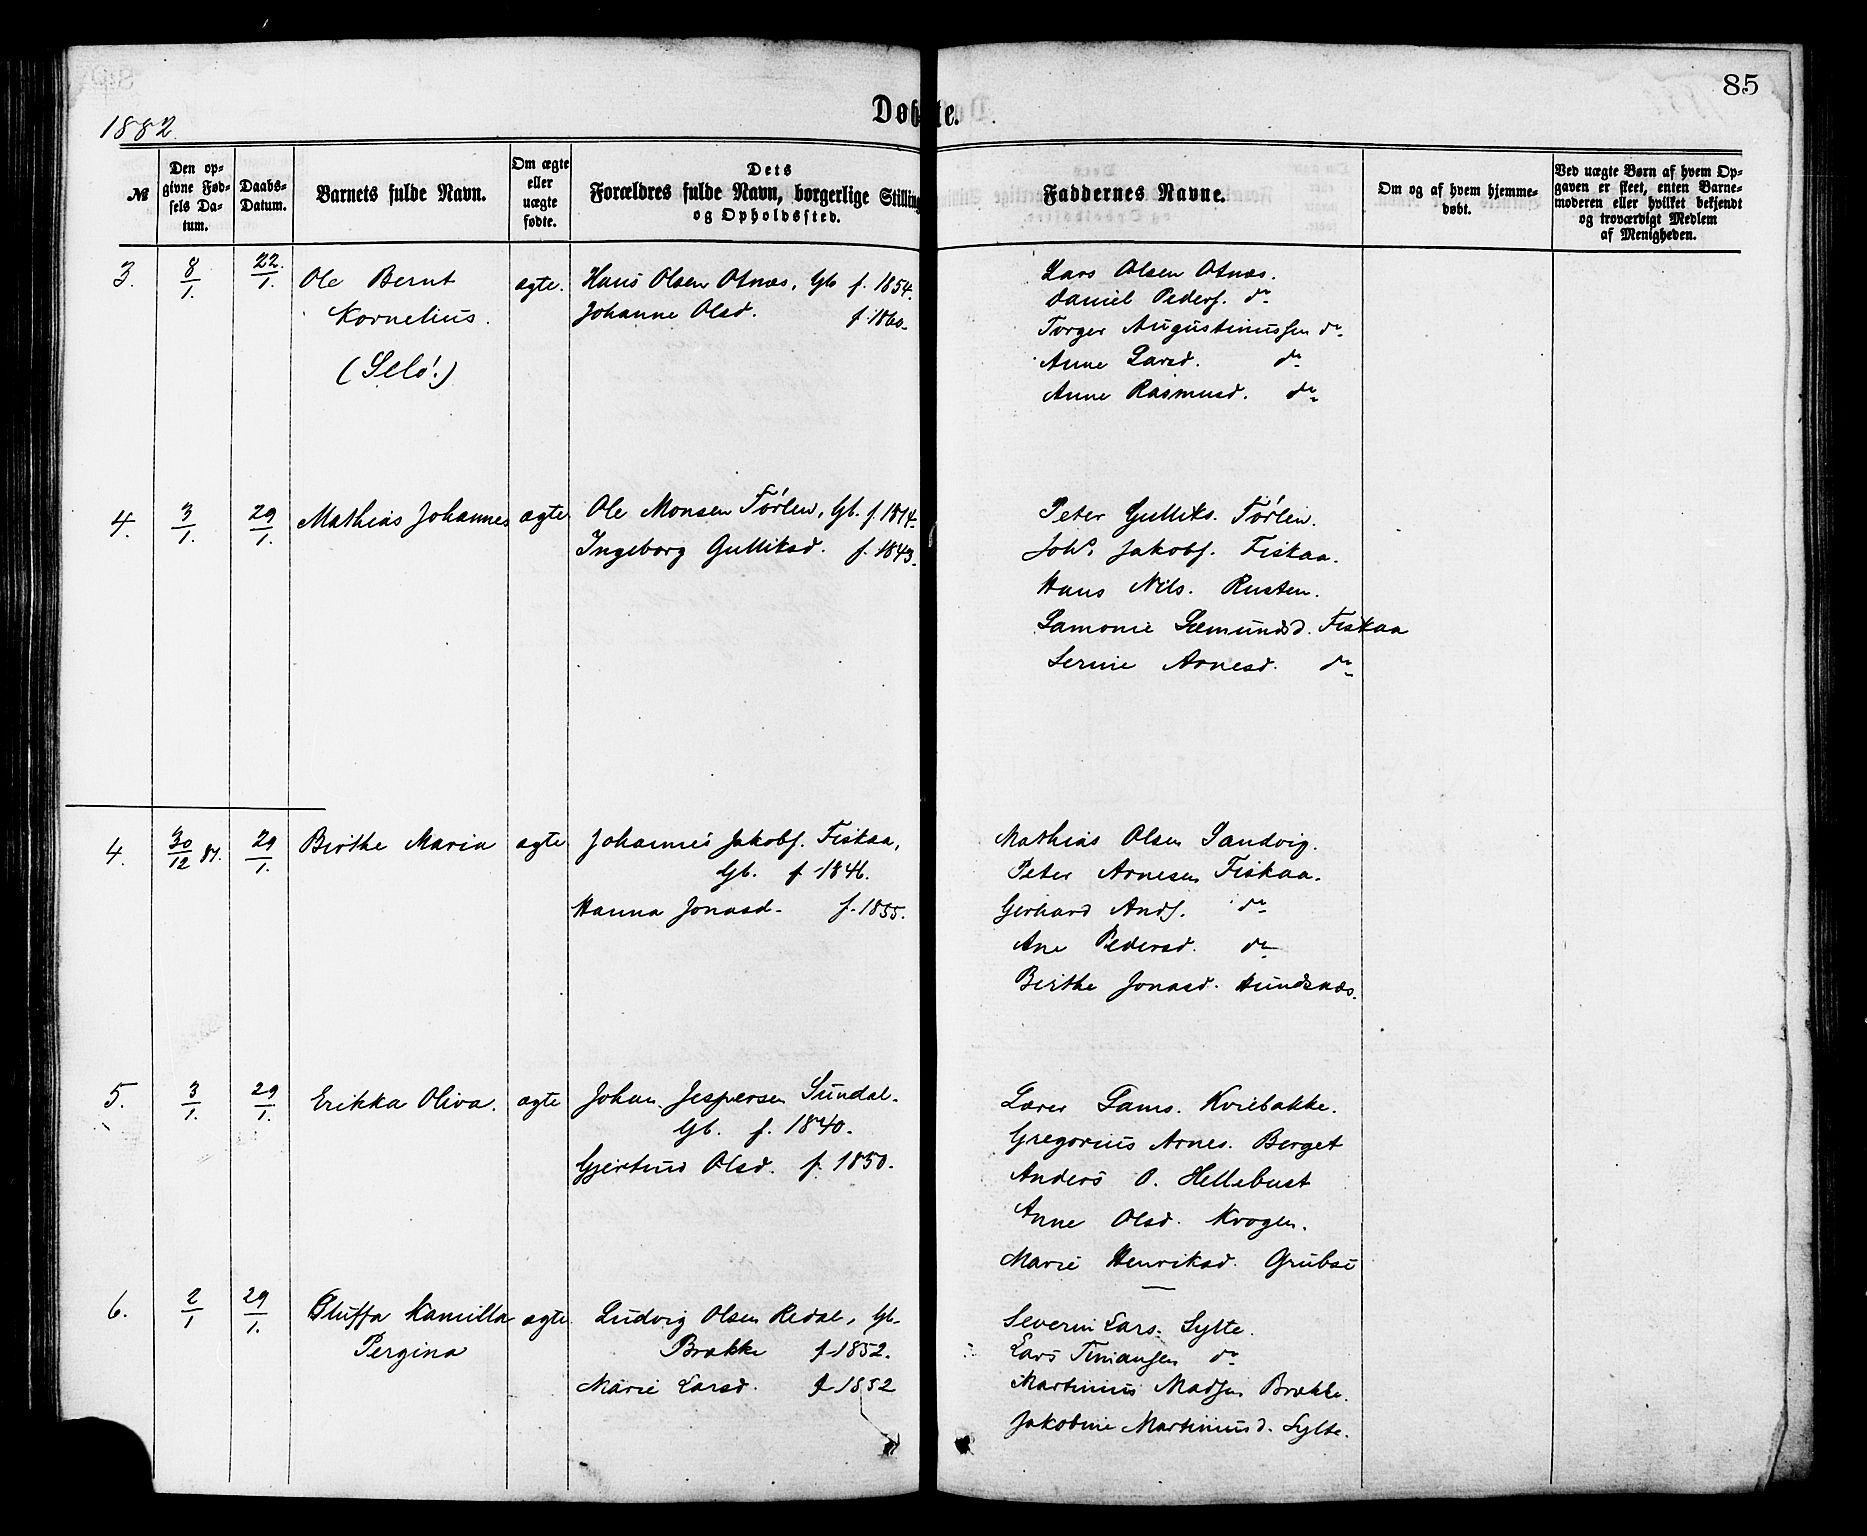 85
1882
Døbte.
№
Den op-
givne Fød-
sels Da-
tum.
Daabs-
Datum.
Barnets fulde Navn.
Om ægte
eller
uægte
fødte.
Dets
Forældres fulde Navn, borgerlige Stilling
og Opholdssted.
Faddernes Navne.
Om og af hvem hjemme-
døbt.
Ved uægte Børn af hvem Op-
gaven er skeet, enten Barne-
moderen eller hvilket bekjendt
og troværdigt Medlem
af Menigheden.
3. 8/1. 22./1. Ole Bernt ægte. Hans Olsen Otnæs, Gb f. 1854.
Kornelius. Johanne Olsd. f. 1860.
(Selø!)
Lars Olsen Otnæs.
Daniel Peders. do
Torger Augustinussen do
Anne Larsd. do
Anne Rasmusd. do
4. 3/1. 29/1. Mathias Johannes ægte Ole Monsen Førlen, Gb. f. 1814.
Ingeborg Gulliksd. f. 1843.
Peter Gulliks. Førlen.
Johs. Jakobs. Fiskaa.
Hans Nils. Rusten.
Samonie Sæmundsd. Fiskaa
Serine Arnesd. do
4. 30/12 81. 29/1. Birthe Maria ægte Johannes Jakobs. Fiskaa,
Gb. f 1846.
Hanna Jonasd. f. 1855.
Mathias Olsen Sandvig.
Peter Arnesen Fiskaa.
Gerhard Ands. do
Ane Pedersd. do
Birthe Jonasd. Hundsnæs.
5. 3/1. 29/1. Erikka Oliva. ægte Johan Jespersen Sundal.
Gb. f. 1840.
Gjertrud Olsd. f. 1850.
Lærer Sams. Kviebakke.
Gregorius Arnes. Berget
Anders O. Hellebust
Anne Olsd. Krogen.
Marie Henriksd. Grubse
6. 2/1 29/1. Kamilla ægte Ludvig Olsen Redal, Gb.
Pergina Brække f 1852.
Marie Larsd. f 1852
Severin Lars. Sylte.
Lars Timansen do
Martinus Madsen Brække.
Jakobine Martinusd. Sylte.